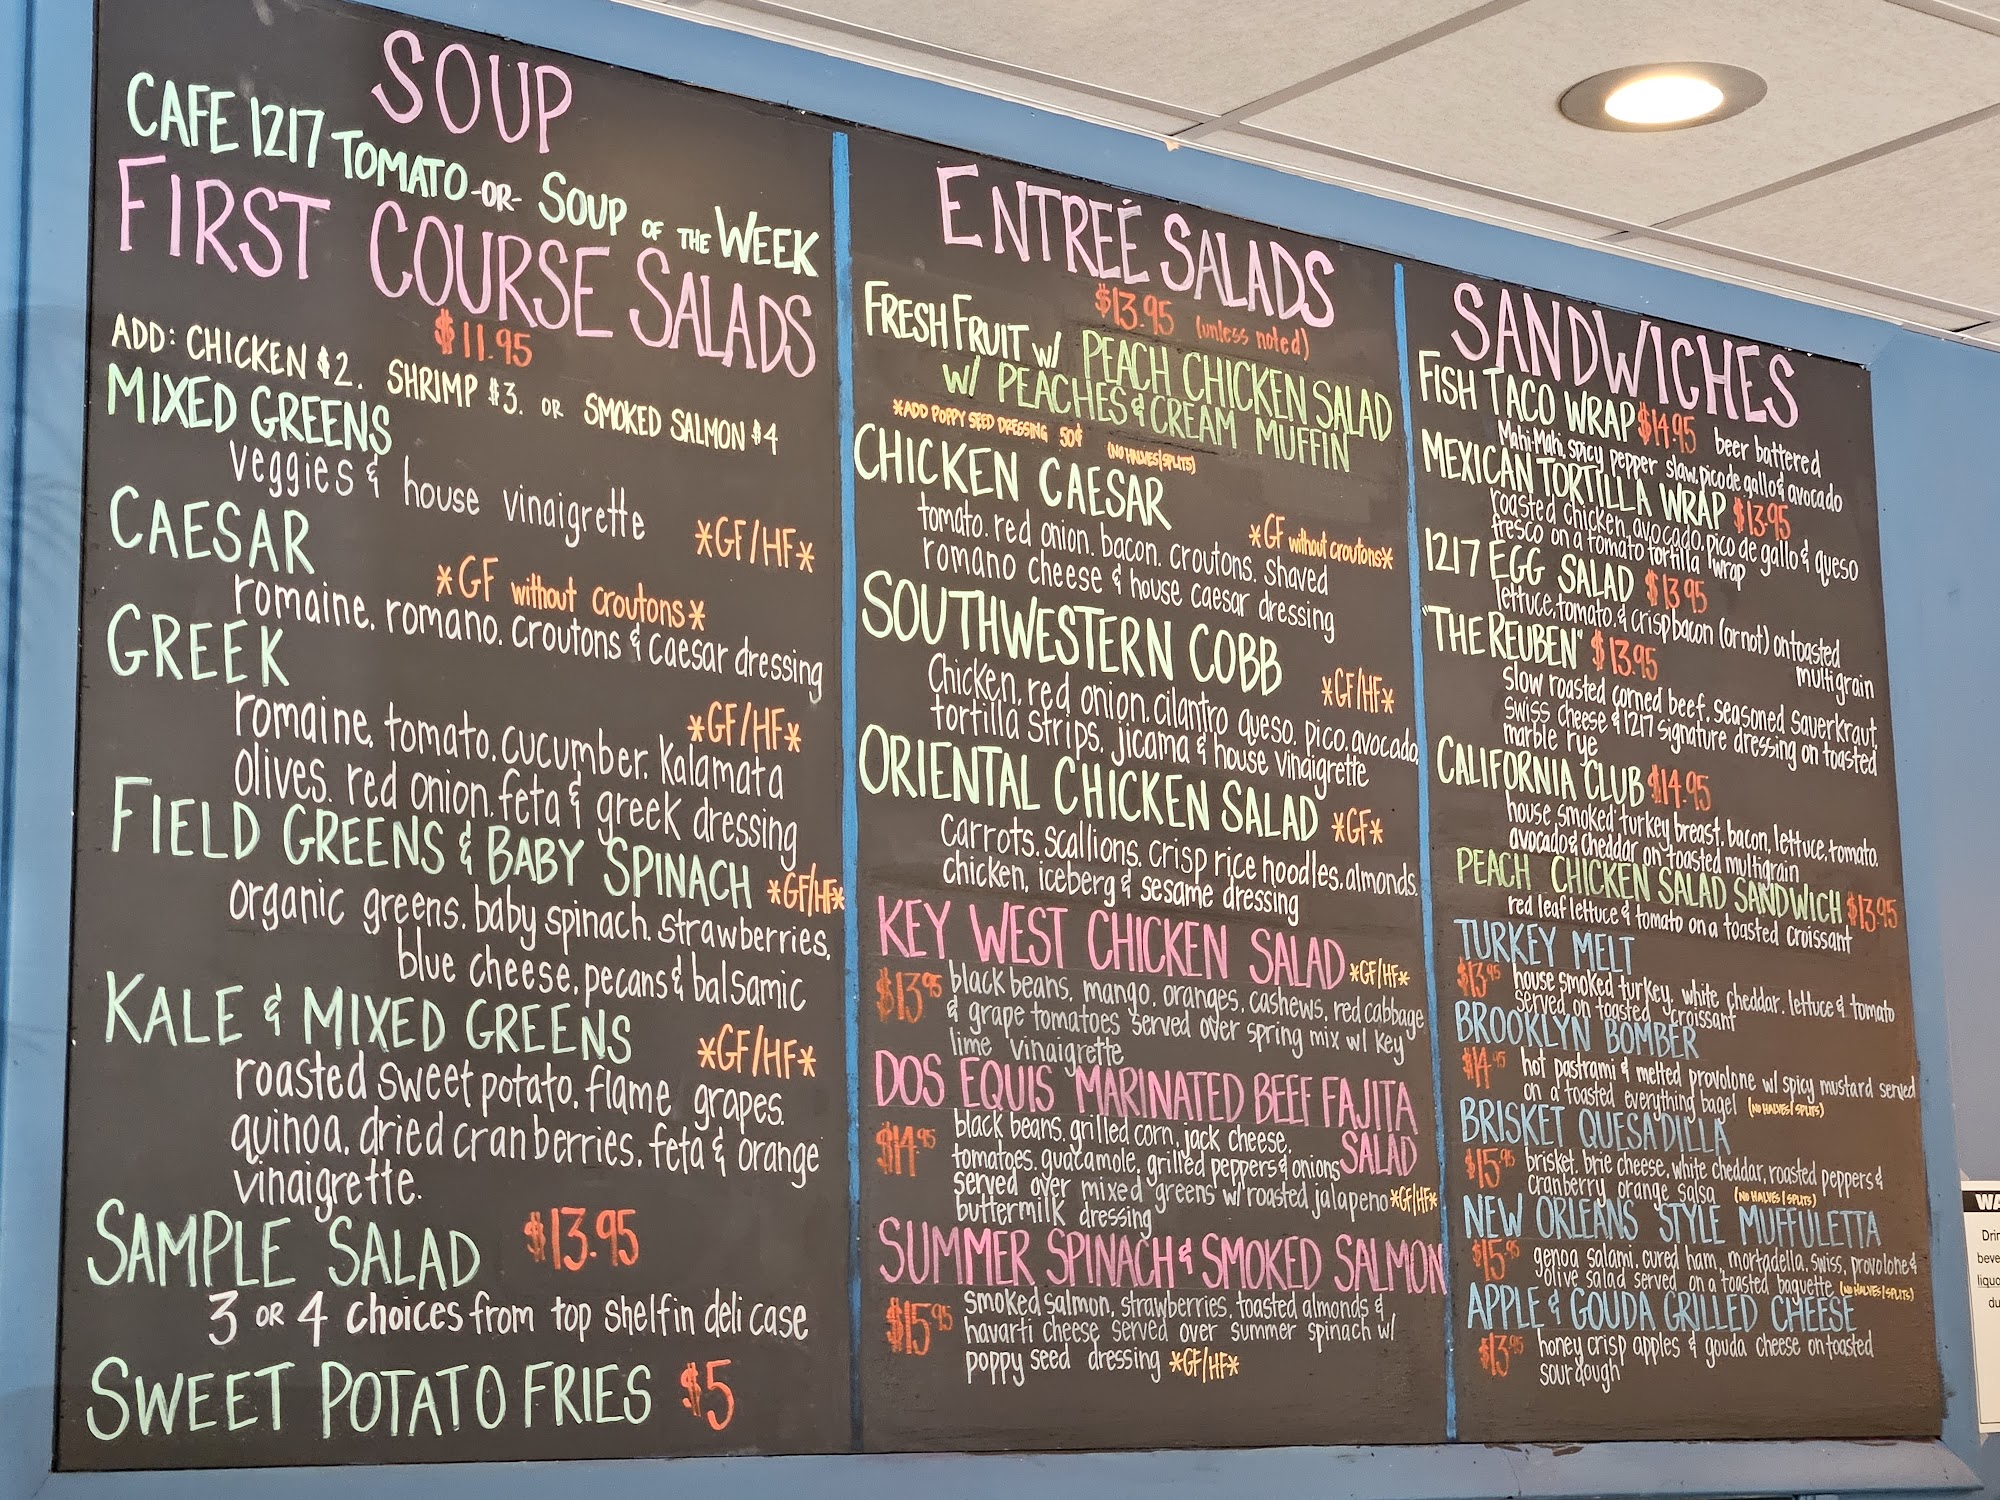 SOUP
CAFE 1217 TOMATO -OR- SOUP OF THE WEEK
FIRST COURSE SALADS
$11.95
ADD: CHICKEN $2. SHRIMP $3. OR SMOKED SALMON $4
MIXED GREENS
veggies & house vinaigrette *GF/HF*
CAESAR
*GF without croutons*
romaine. romano. croutons & caesar dressing
GREEK
*GF/HF*
romaine. tomato. cucumber. Kalamata
olives. red onion. feta & greek dressing
FIELD GREENS & BABY SPINACH *GF/HF*
organic greens. baby spinach. strawberries.
blue cheese. pecans & balsamic
KALE & MIXED GREENS *GF/HF*
roasted sweet potato. flame grapes.
quinoa. dried cranberries. feta & orange
vinaigrette.
SAMPLE SALAD $13.95
3 OR 4 choices from top shelf in deli case
SWEET POTATO FRIES $5
ENTREÉ SALADS
$13.95 (unless noted)
FRESH FRUIT W/ PEACH CHICKEN SALAD
W/ PEACHES & CREAM MUFFIN
*ADD POPPY SEED DRESSING 50¢ (NO HALVES/SPLITS)
CHICKEN CAESAR
*GF without croutons*
tomato. red onion. bacon. croutons. shaved
romano cheese & house caesar dressing
SOUTHWESTERN COBB *GF/HF*
Chicken. red onion. cilantro queso. pico. avocado
tortilla strips. jicama & house vinaigrette
ORIENTAL CHICKEN SALAD *GF*
Carrots. scallions. crisp rice noodles. almonds.
chicken. iceberg & sesame dressing
KEY WEST CHICKEN SALAD *GF/HF*
$13.95 black beans. mango. oranges. cashews. red cabbage
& grape tomatoes served over spring mix w/ key
lime vinaigrette
DOS EQUIS MARINATED BEEF FAJITA
SALAD
$14.95 black beans. grilled corn. jack cheese.
tomatoes. guacamole. grilled peppers & onions
served over mixed greens w/ roasted jalapeno *GF/HF*
buttermilk dressing
SUMMER SPINACH & SMOKED SALMON
$15.95 smoked salmon. strawberries. toasted almonds &
havarti cheese served over summer spinach w/
poppy seed dressing *GF/HF*
SANDWICHES
FISH TACO WRAP $14.95 beer battered
Mahi-Mahi. spicy pepper slaw. pico de gallo & avocado
MEXICAN TORTILLA WRAP $13.95
roasted chicken. avocado. pico de gallo & queso
fresco on a tomato tortilla wrap
1217 EGG SALAD $13.95
lettuce. tomato. & crisp bacon (or not) on toasted
multigrain
"THE REUBEN" $13.95
slow roasted corned beef. seasoned sauerkraut.
swiss cheese & 1217 signature dressing on toasted
marble rye
CALIFORNIA CLUB $14.95
house smoked turkey breast. bacon. lettuce. tomato.
avocado & cheddar on toasted multigrain
PEACH CHICKEN SALAD SANDWICH $13.95
red leaf lettuce & tomato on a toasted croissant
TURKEY MELT
$13.95 house smoked turkey. white cheddar. lettuce & tomato
served on toasted croissant
BROOKLYN BOMBER
$14.95 hot pastrami & melted provolone w/ spicy mustard served
on a toasted everything bagel (NO HALVES/SPLITS)
BRISKET QUESADILLA
$15.95 brisket. brie cheese. white cheddar. roasted peppers &
cranberry orange salsa (NO HALVES/SPLITS)
NEW ORLEANS STYLE MUFFULETTA
$15.95 genoa salami. cured ham. mortadella. swiss. provolone &
olive salad served on a toasted baguette (NO HALVES/SPLITS)
APPLE & GOUDA GRILLED CHEESE
$13.95 honey crisp apples & gouda cheese on toasted
sourdough